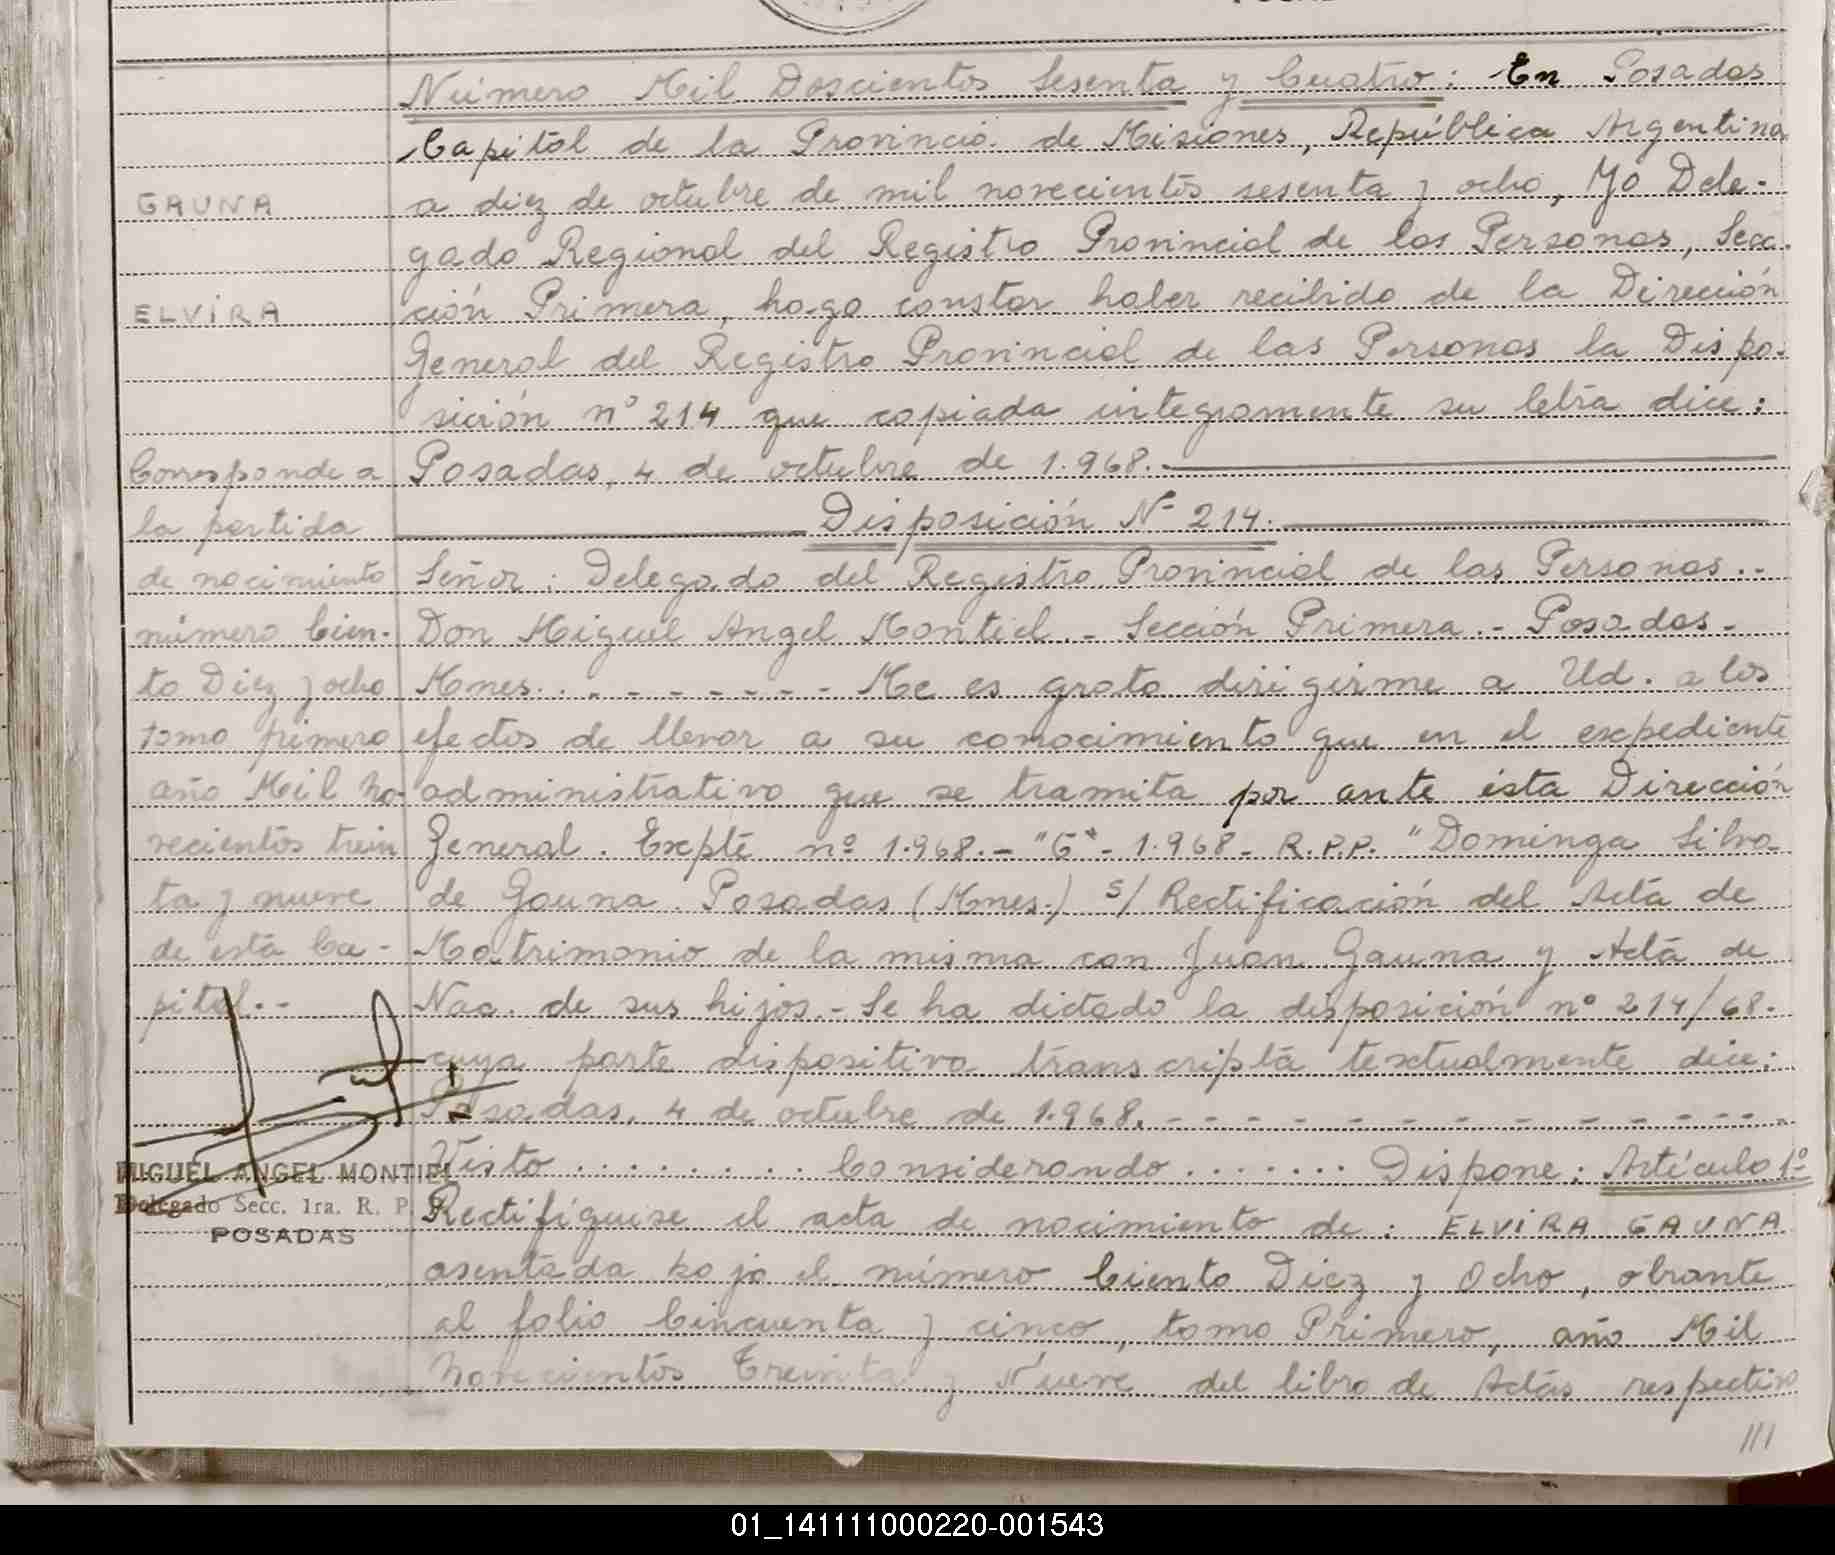 Número Mil Doscientos Sesenta y Cuatro: En Posadas
Capital de la Provincia de Misiones, República Argentina
a diez de octubre de mil novecientos sesenta y ocho, Yo Dele-
gado Regional del Registro Provincial de las Personas, Sec-
ción Primera, hago constar haber recibido de la Dirección
General del Registro Provincial de las Personas la Dispo-
sición nº 214 que copiada integramente su letra dice:
Posadas, 4 de octubre de 1.968.-
Disposición Nº 214.
Señor: Delegado del Registro Provincial de las Personas..
Don Miguel Angel Montiel.- Sección Primera.- Posadas-
Mnes. - - - - - - - Me es grato dirigirme a Ud. a los
efectos de llevar a su conocimiento que en el expediente
administrativo que se tramita por ante ésta Dirección
General. Expte nº 1.968.- "G"- 1.968- R.P.P. "Dominga Silva
de Gauna. Posadas (Mnes.) s/ Rectificación del Acta de
Matrimonio de la misma con Juan Gauna y Acta de
Nac. de sus hijos.- Se ha dictado la disposición nº 214/68.
cuya parte dispositiva transcripta textualmente dice:
Posadas, 4 de octubre de 1.968. - - - - - - - - - - - - - -
Visto ......... Considerando ....... Dispone: Artículo 1º
Rectifíquese el acta de nacimiento de: ELVIRA GAUNA
asentada bajo el número Ciento Diez y Ocho, obrante
al folio Cincuenta y cinco, tomo Primero, año Mil
Novecientos Treinta y Nueve del libro de Actas respectivo
///
GAUNA
ELVIRA
Corresponde a
la partida
de nacimiento
número Cien-
to Diez y ocho
tomo primero
año Mil no-
vecientos trein
ta y nueve
de esta Ca-
pital.-
MIGUEL ANGEL MONTIEL
Delegado Secc. 1ra. R. P.
POSADAS
01_141111000220-001543